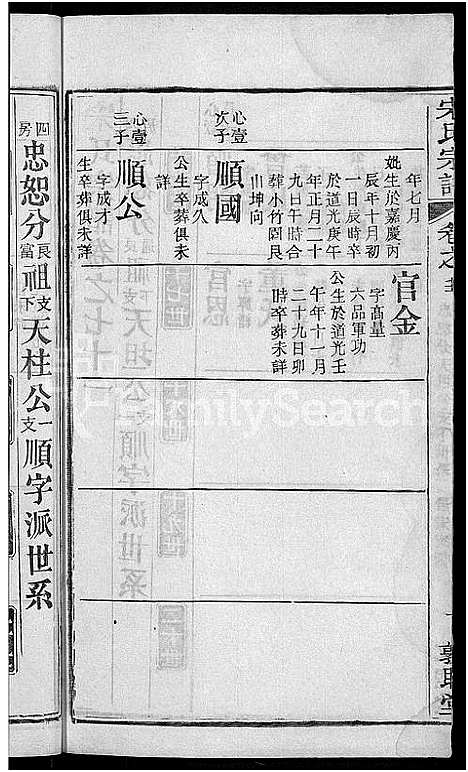 宋氏宗譜
年七月
妣生於嘉慶丙
辰年十月初
一日辰時卒
於道光庚午
年正月二十
九日午時合
葬小竹園艮
山坤向
官金
字高量
六品軍功
公生於道光壬
午年十一月
二十九日卯
時卒葬未詳
心壹次子
順國
字成久
公生卒葬俱未
詳
心壹三子
順公
字成才
生卒葬俱未詳
四房忠恕分長富祖支下天柱公一支順字派世系
FamilySearch